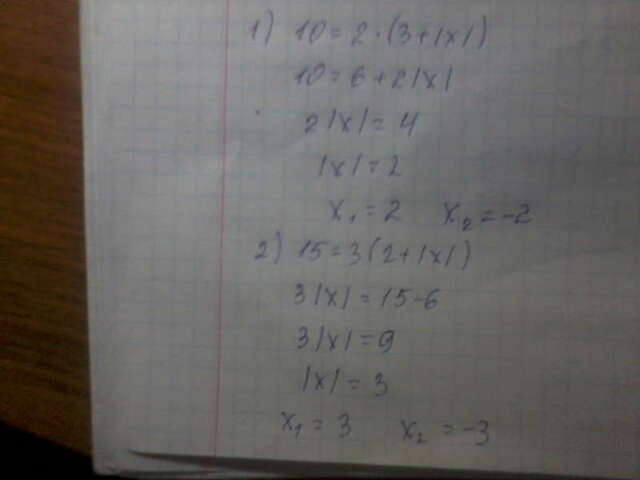 1) 10 = 2 · (3 + |x|)
10 = 6 + 2|x|
2|x| = 4
|x| = 2
x₁ = 2 x₂ = -2
2) 15 = 3(2 + |x|)
3|x| = 15 - 6
3|x| = 9
|x| = 3
x₁ = 3 x₂ = -3